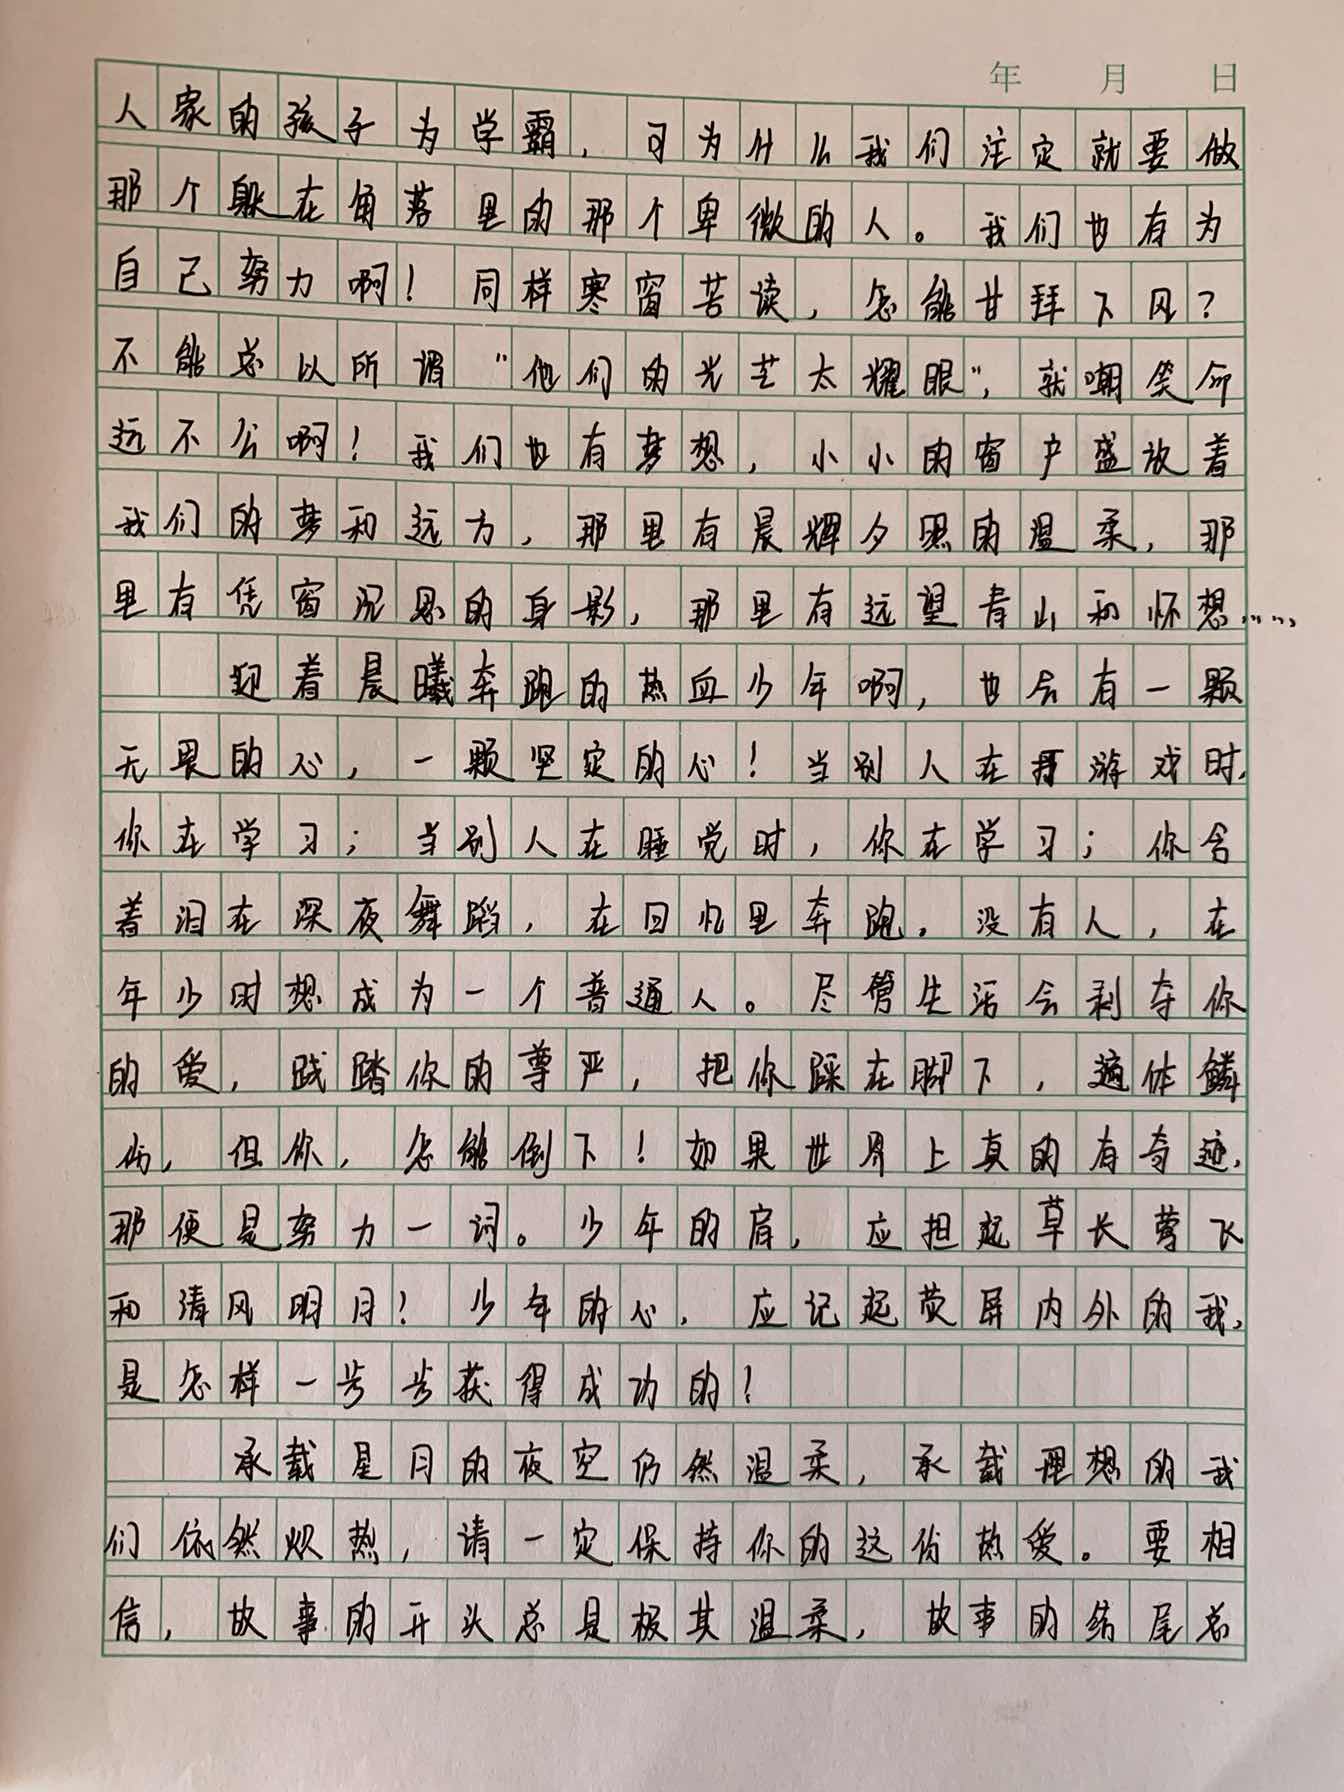 年 月 日
人家的孩子为学霸，可为什么我们注定就要做
那个躲在角落里的那个卑微的人。我们也有为
自己努力啊！同样寒窗苦读，怎能甘拜下风？
不能总以所谓“他们的光芒太耀眼”，就嘲笑命
运不公啊！我们也有梦想，小小的窗户盛放着
我们的梦和远方，那里有晨辉夕照的温柔，那
里有凭窗沉思的身影，那里有远望青山和怀想……
迎着晨曦奔跑的热血少年啊，也会有一颗
无畏的心，一颗坚定的心！当别人在打游戏时，
你在学习；当别人在睡觉时，你在学习；你含
着泪在深夜舞蹈，在回忆里奔跑。没有人，在
年少时想成为一个普通人。尽管生活会剥夺你
的爱，践踏你的尊严，把你踩在脚下，遍体鳞
伤，但你，怎能倒下！如果世界上真的有奇迹，
那便是努力一词。少年的肩，应担起草长莺飞
和清风明月！少年的心，应记起荧屏内外的我，
是怎样一步步获得成功的！
承载星月的夜空仍然温柔，承载理想的我
们依然炽热，请一定保持你的这份热爱。要相
信，故事的开头总是极其温柔，故事的结尾总